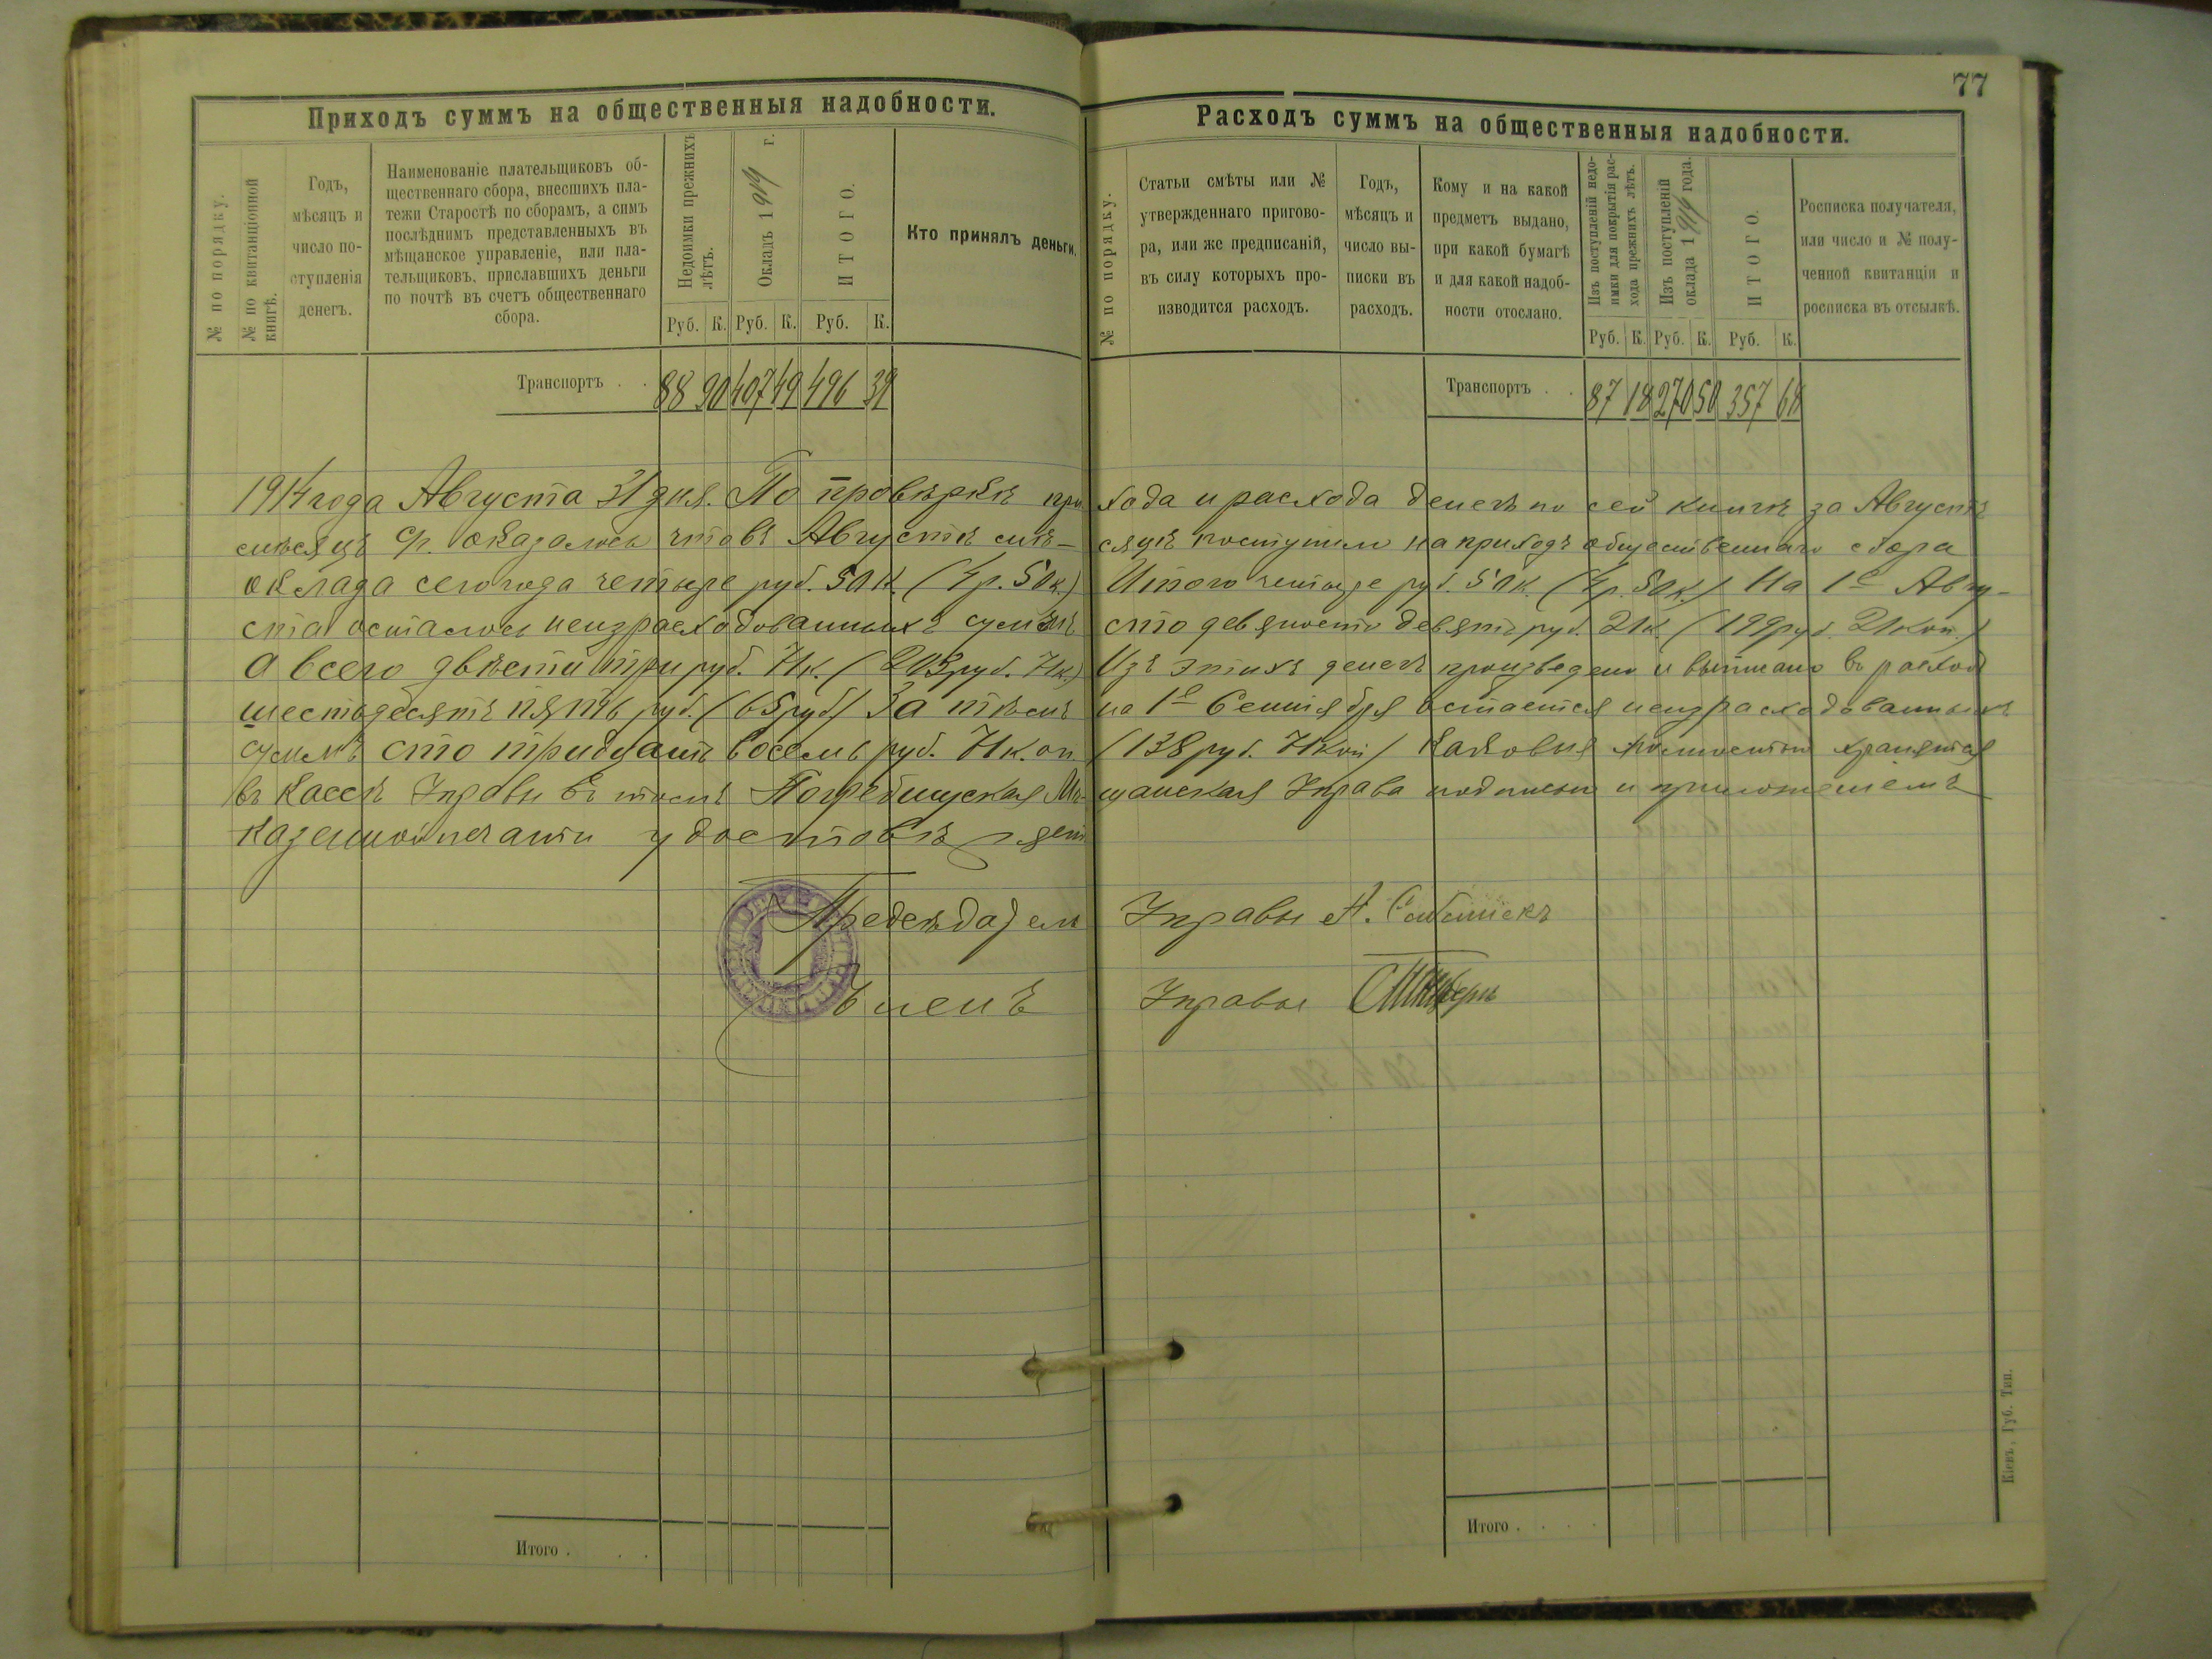 77
Приходъ суммъ на общественныя надобности.
№ по порядку.
№ по квитанціонной
книгѣ.
Годъ,
мѣсяцъ и
число по-
ступленія
денегъ.
Наименованіе плательщиковъ об-
щественнаго сбора, внесшихъ пла-
тежи Старостѣ по сборамъ, а симъ
послѣднимъ представленныхъ въ
мѣщанское управленіе, или пла-
тельщиковъ, приславшихъ деньги
по почтѣ въ счетъ общественнаго
сбора.
Недоимки прежнихъ
лѣтъ.
Окладъ 1914 г.
ИТОГО.
Кто принялъ деньги.
Руб. К. Руб. К. Руб. К.
Транспортъ . . 88 90 407 49 496 39
Расходъ суммъ на общественныя надобности.
№ по порядку.
Статьи смѣты или №
утвержденнаго пригово-
ра, или же предписаній,
въ силу которыхъ про-
изводится расходъ.
Годъ,
мѣсяцъ и
число вы-
писки въ
расходъ.
Кому и на какой
предметъ выдано,
при какой бумагѣ
и для какой надоб-
ности отослано.
Изъ поступленій недо-
имки для покрытія рас-
хода прежнихъ лѣтъ.
Изъ поступленій
оклада 1914 года.
ИТОГО.
Росписка получателя,
или число и № полу-
ченной квитанціи и
росписка въ отсылкѣ.
Руб. К. Руб. К. Руб. К.
Транспортъ . . 87 18 270 50 357 68
1914 года Августа 31 дня. По провѣркѣ при хода и расхода денегъ по сей книгѣ за Августъ
мѣсяцъ с/г. оказалось что въ Августѣ мѣ- сяцѣ поступило на приходъ общественнаго сбора
оклада сего года четыре руб. 50 к. (4 р. 50 к.) Итого четыре руб. 50 к. (4 р. 50 к.) На 1е Авгу-
ста осталось неизрасходованныхъ суммъ сто девяносто девять руб. 21 к. (199 руб. 21 коп.)
а всего двѣсти три руб. 71 к. (203 руб. 71 к.) Изъ этихъ денегъ произведено и выписано въ расходъ
шестьдесятъ пять руб. (65 руб) За тѣмъ на 1е Сентября остается неизрасходованныхъ
суммъ сто тридцать восемь руб. 71 коп (138 руб. 71 коп) каковыя полностью хранятся
въ кассѣ Управы въ томъ Погребищуская Мѣ- щанская Управа подписью и приложеніемъ
казенной печати удостовѣряетъ
Предсѣдатель Управы
Членъ Управы
Итого . . .
Итого . . . .
Кіевъ, Губ. Тип.